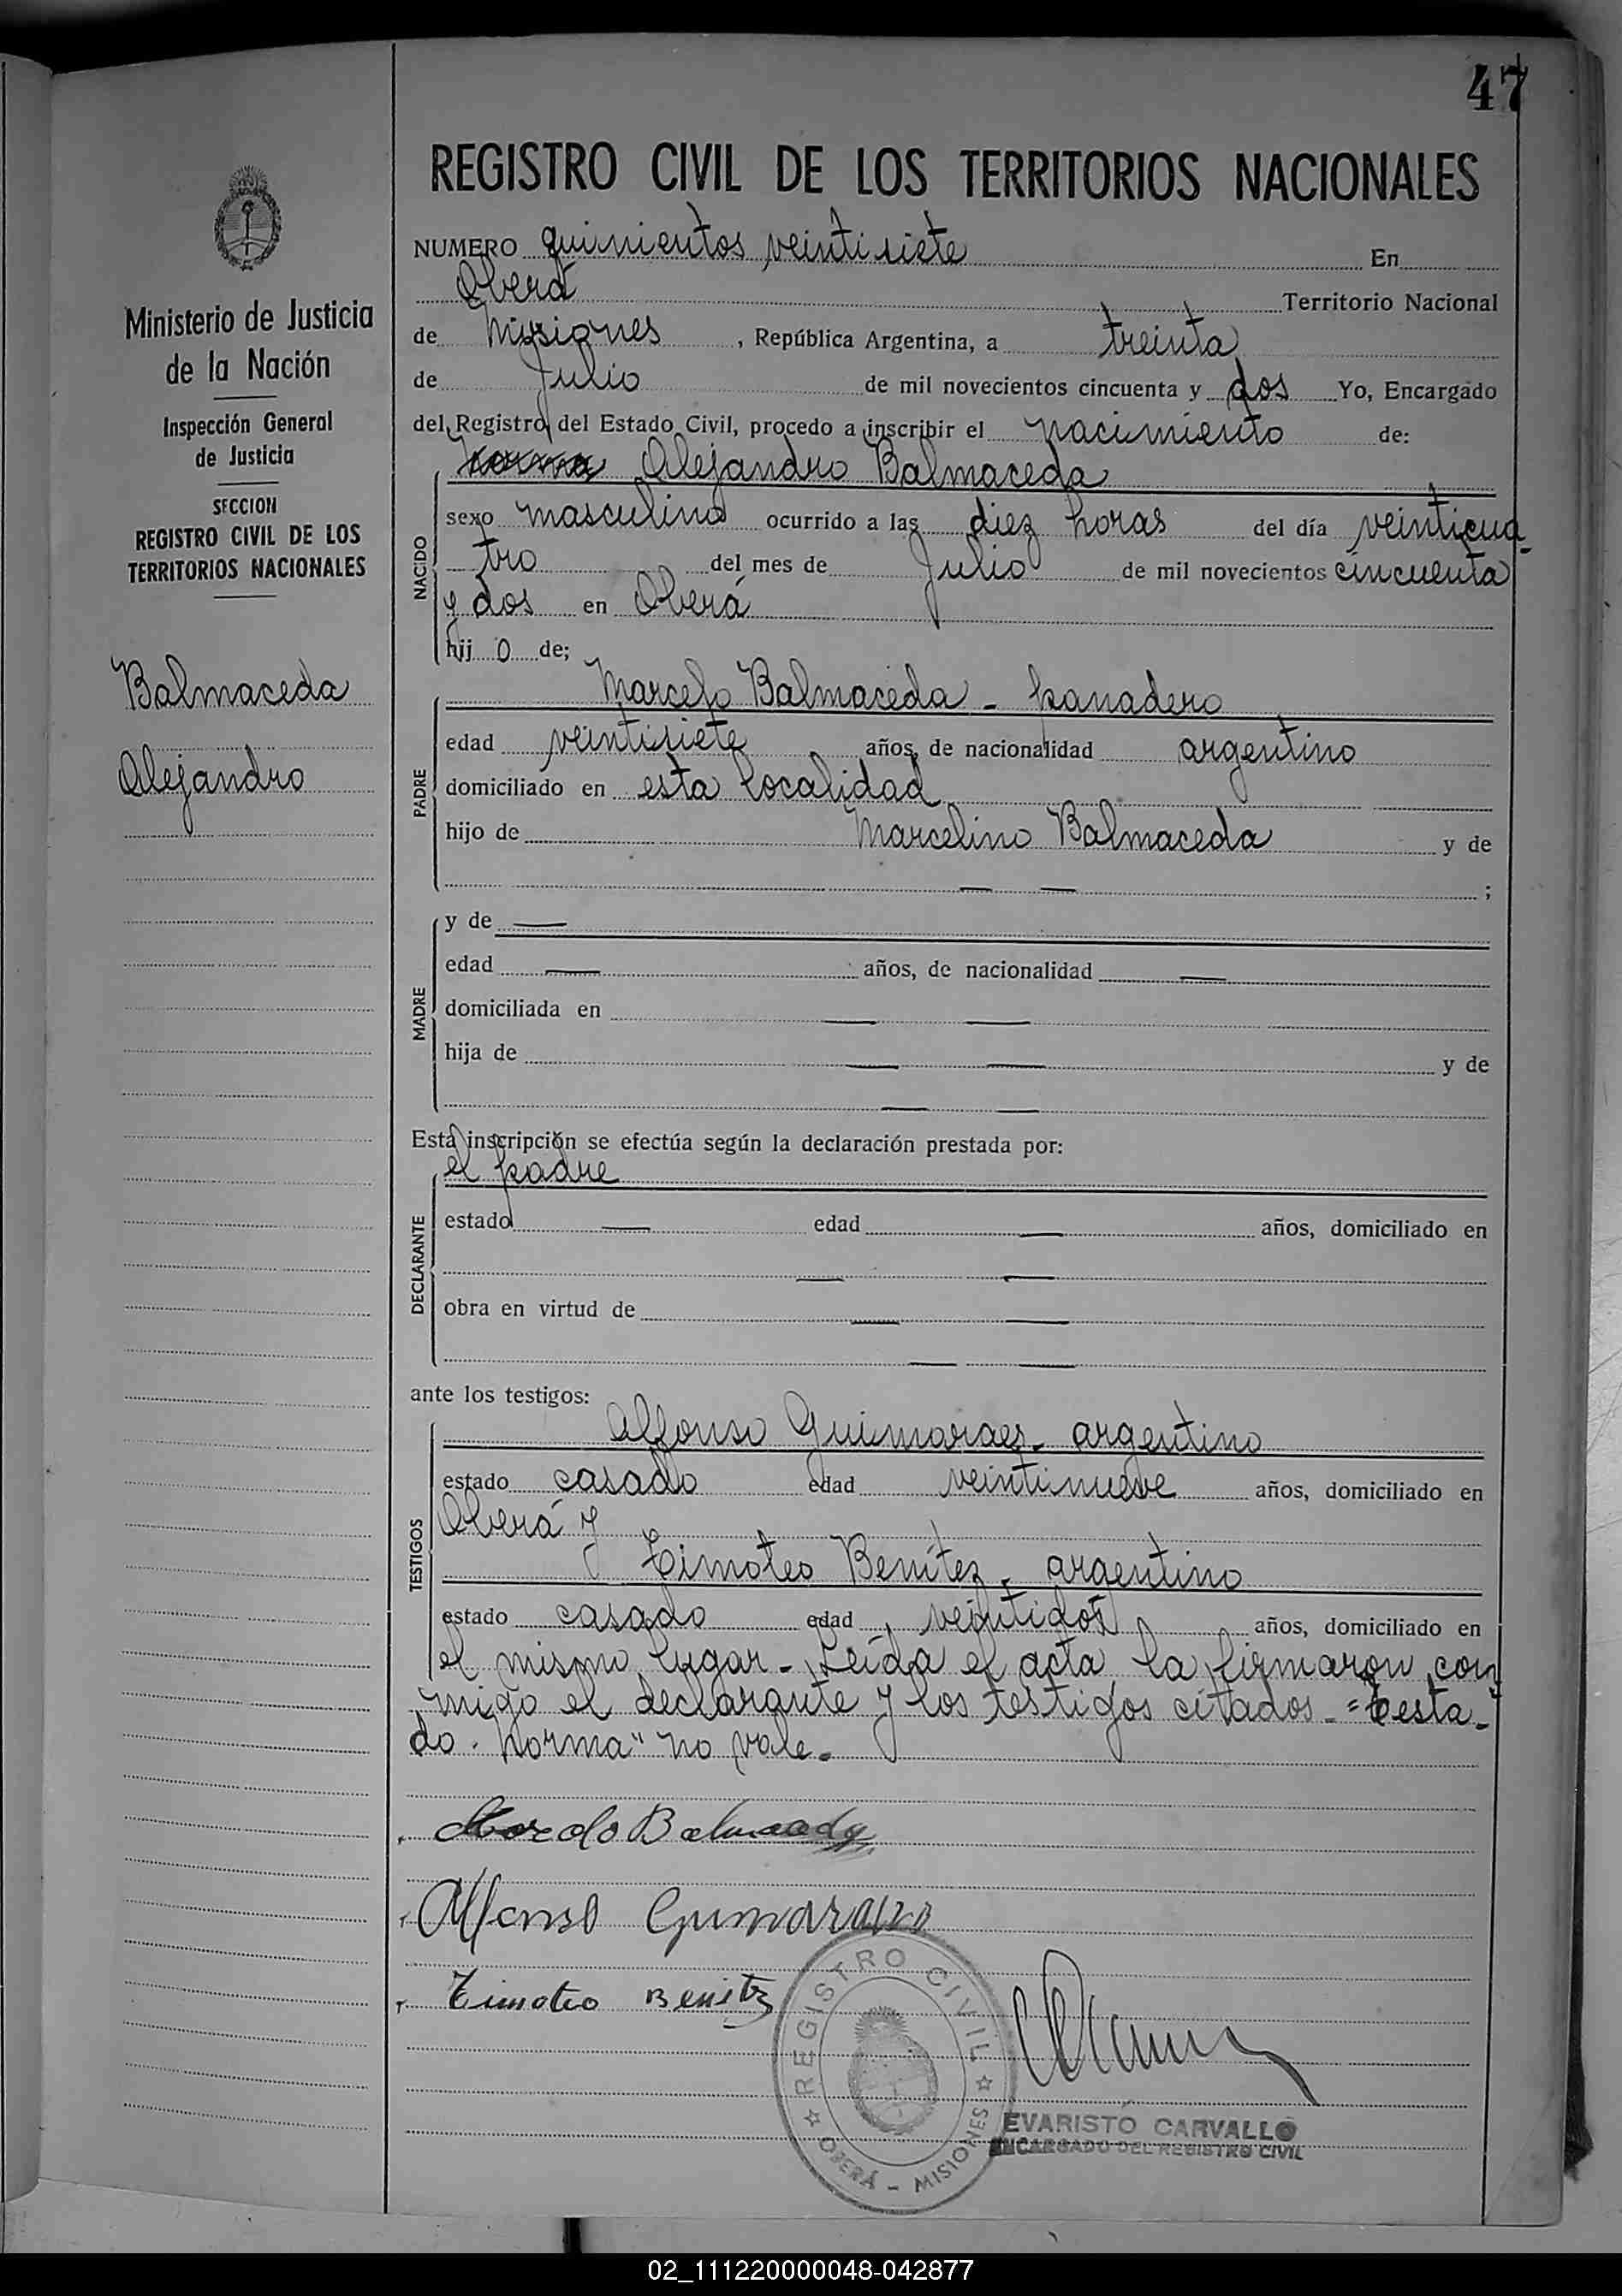 47
REGISTRO CIVIL DE LOS TERRITORIOS NACIONALES
NUMERO quinientos veintisiete En
Oberá Territorio Nacional
de Misiones , República Argentina, a treinta
de Julio de mil novecientos cincuenta y dos Yo, Encargado
del Registro del Estado Civil, procedo a inscribir el nacimiento de:
Norma Alejandro Balmaceda
NACIDO
sexo masculino ocurrido a las diez horas del día veinticua-
tro del mes de Julio de mil novecientos cincuenta
y dos en Oberá
hij o de;
PADRE
Marcelo Balmaceda - panadero
edad veintisiete años, de nacionalidad argentino
domiciliado en esta localidad
hijo de Marcelino Balmaceda y de
— — ;
MADRE
y de —
edad — años, de nacionalidad —
domiciliada en — —
hija de — — y de
— —
Esta inscripción se efectúa según la declaración prestada por:
DECLARANTE
el padre
estado — edad — años, domiciliado en
— —
obra en virtud de — —
— —
ante los testigos:
TESTIGOS
Alfonso Guimaraes - argentino
estado casado edad veintinueve años, domiciliado en
Oberá y
Timoteo Benítez - argentino
estado casado edad veintidós años, domiciliado en
el mismo lugar - Leída el acta la firmaron con
migo el declarante y los testigos citados - = Testa-
do "Norma" no vale.
Marcelo Balmaceda
Alfonso Guimaraes
Timoteo Benitez
REGISTRO CIVIL
OBERÁ - MISIONES
EVARISTO CARVALLO
ENCARGADO DEL REGISTRO CIVIL
Ministerio de Justicia
de la Nación
Inspección General
de Justicia
SECCION
REGISTRO CIVIL DE LOS
TERRITORIOS NACIONALES
Balmaceda
Alejandro
02_111220000048-042877